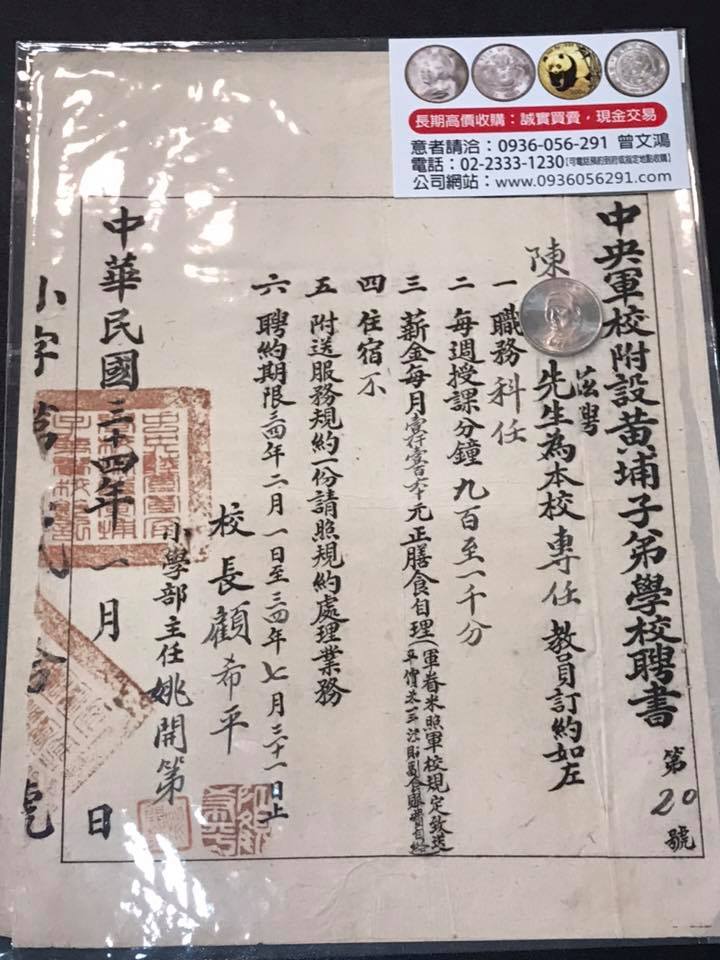 長期高價收購：誠實買賣，現金交易
意者請洽：0936-056-291 曾文鴻
電話：02-2333-1230【可電話預約到府或指定地點收購】
公司網站：www.0936056291.com
中央軍校附設黃埔子弟學校聘書
第20號
茲聘
陳
先生為本校專任教員訂約如左
一 職務科任
二 每週授課分鐘九百至一千分
三 薪金每月壹仟壹百六十元正膳食自理(軍眷米照軍校規定致送
四 住宿不
五 附送服務規約一份請照規約處理業務
六 聘約期限三四年二月一日至三四年七月三十一日止
校長顧希平
小學部主任姚開第
中華民國三十四年一月 日